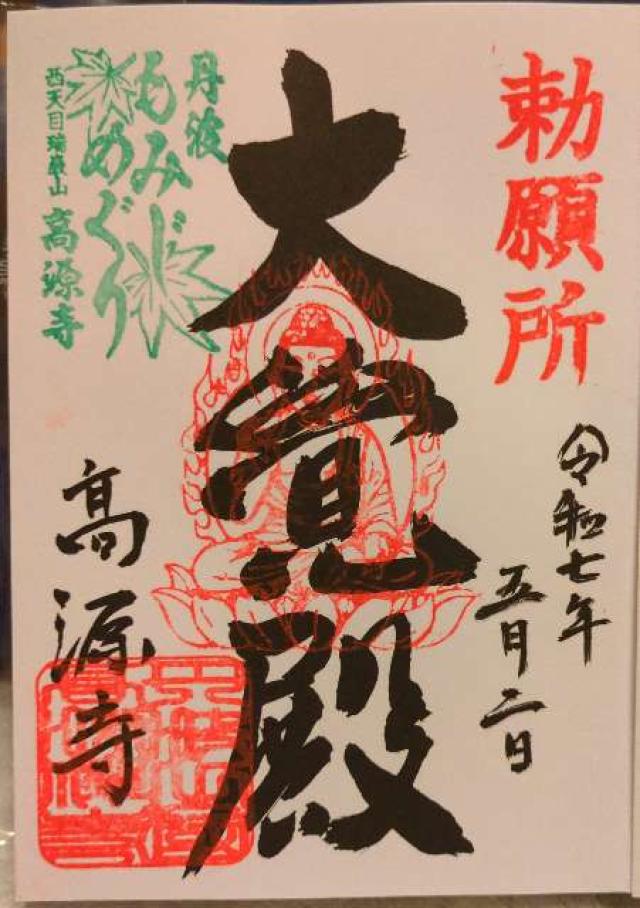 勅願所
令和七年
五月二日
大覚殿
丹波
もみじ
めぐり
西天目瑞巌山 高源寺
高源寺